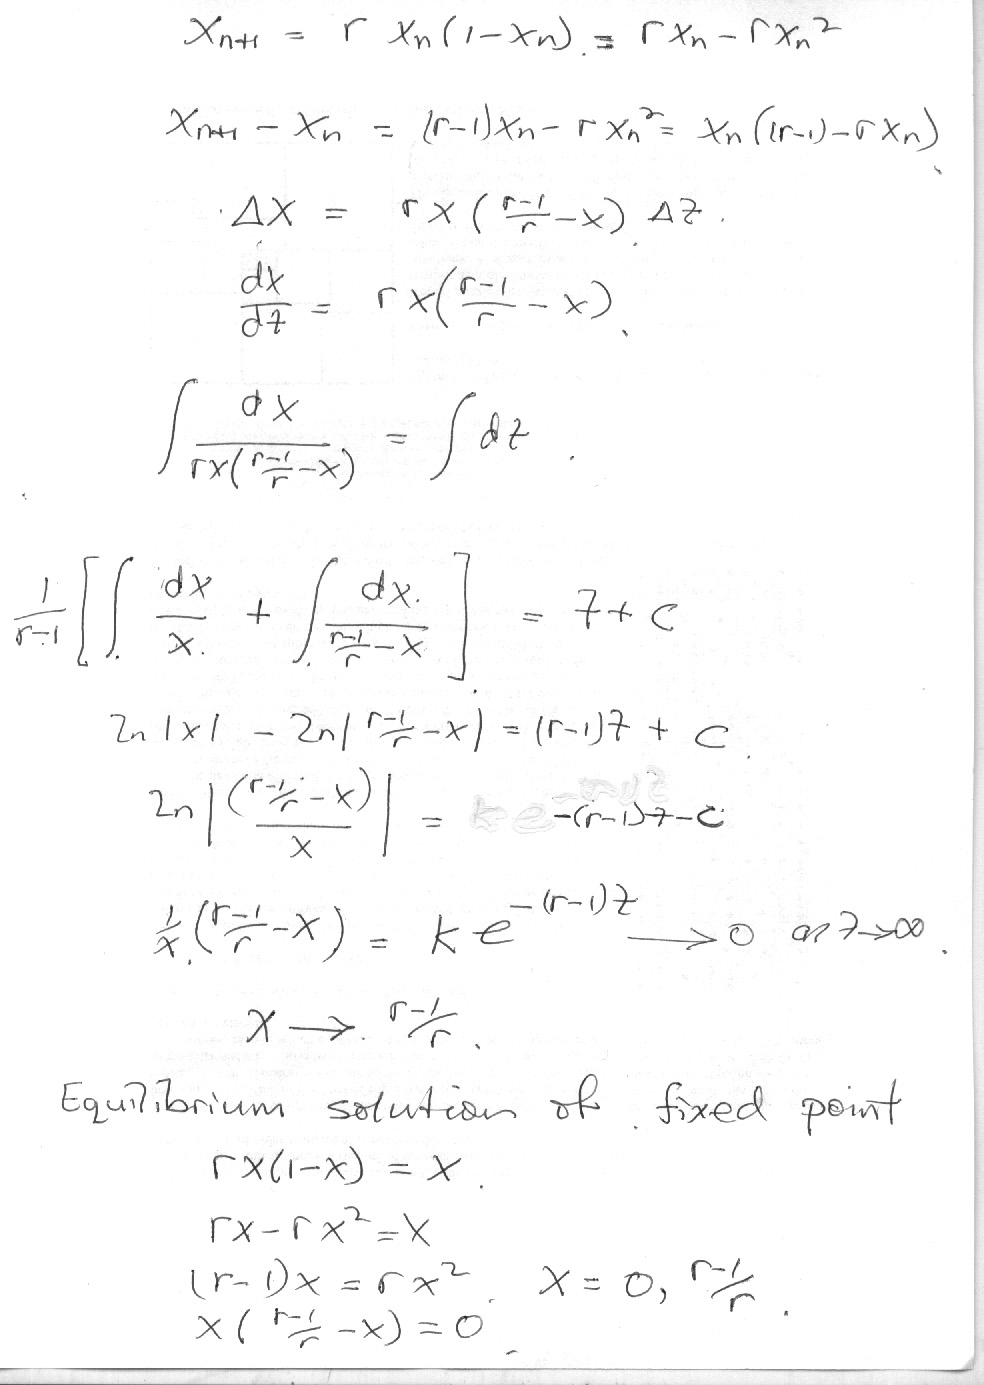 x_{n+1} = r x_n (1-x_n) = r x_n - r x_n^2
x_{n+1} - x_n = (r-1)x_n - r x_n^2 = x_n ((r-1) - r x_n)
Δx = r x ( \frac{r-1}{r} - x ) Δt.
\frac{dx}{dt} = r x ( \frac{r-1}{r} - x )
∫ \frac{dx}{r x ( \frac{r-1}{r} - x )} = ∫ dt.
\frac{1}{r-1} [ ∫ \frac{dx}{x} + ∫ \frac{dx}{\frac{r-1}{r} - x} ] = t + c
ln |x| - ln | \frac{r-1}{r} - x | = (r-1)t + c
ln | \frac{( \frac{r-1}{r} - x )}{x} | = -(r-1)t - c
\frac{1}{x} ( \frac{r-1}{r} - x ) = k e^{-(r-1)t} → 0 as t → ∞.
x → \frac{r-1}{r}.
Equilibrium solution of fixed point
r x (1-x) = x.
r x - r x^2 = x
(r-1) x = r x^2. x = 0, \frac{r-1}{r}.
x ( \frac{r-1}{r} - x ) = 0